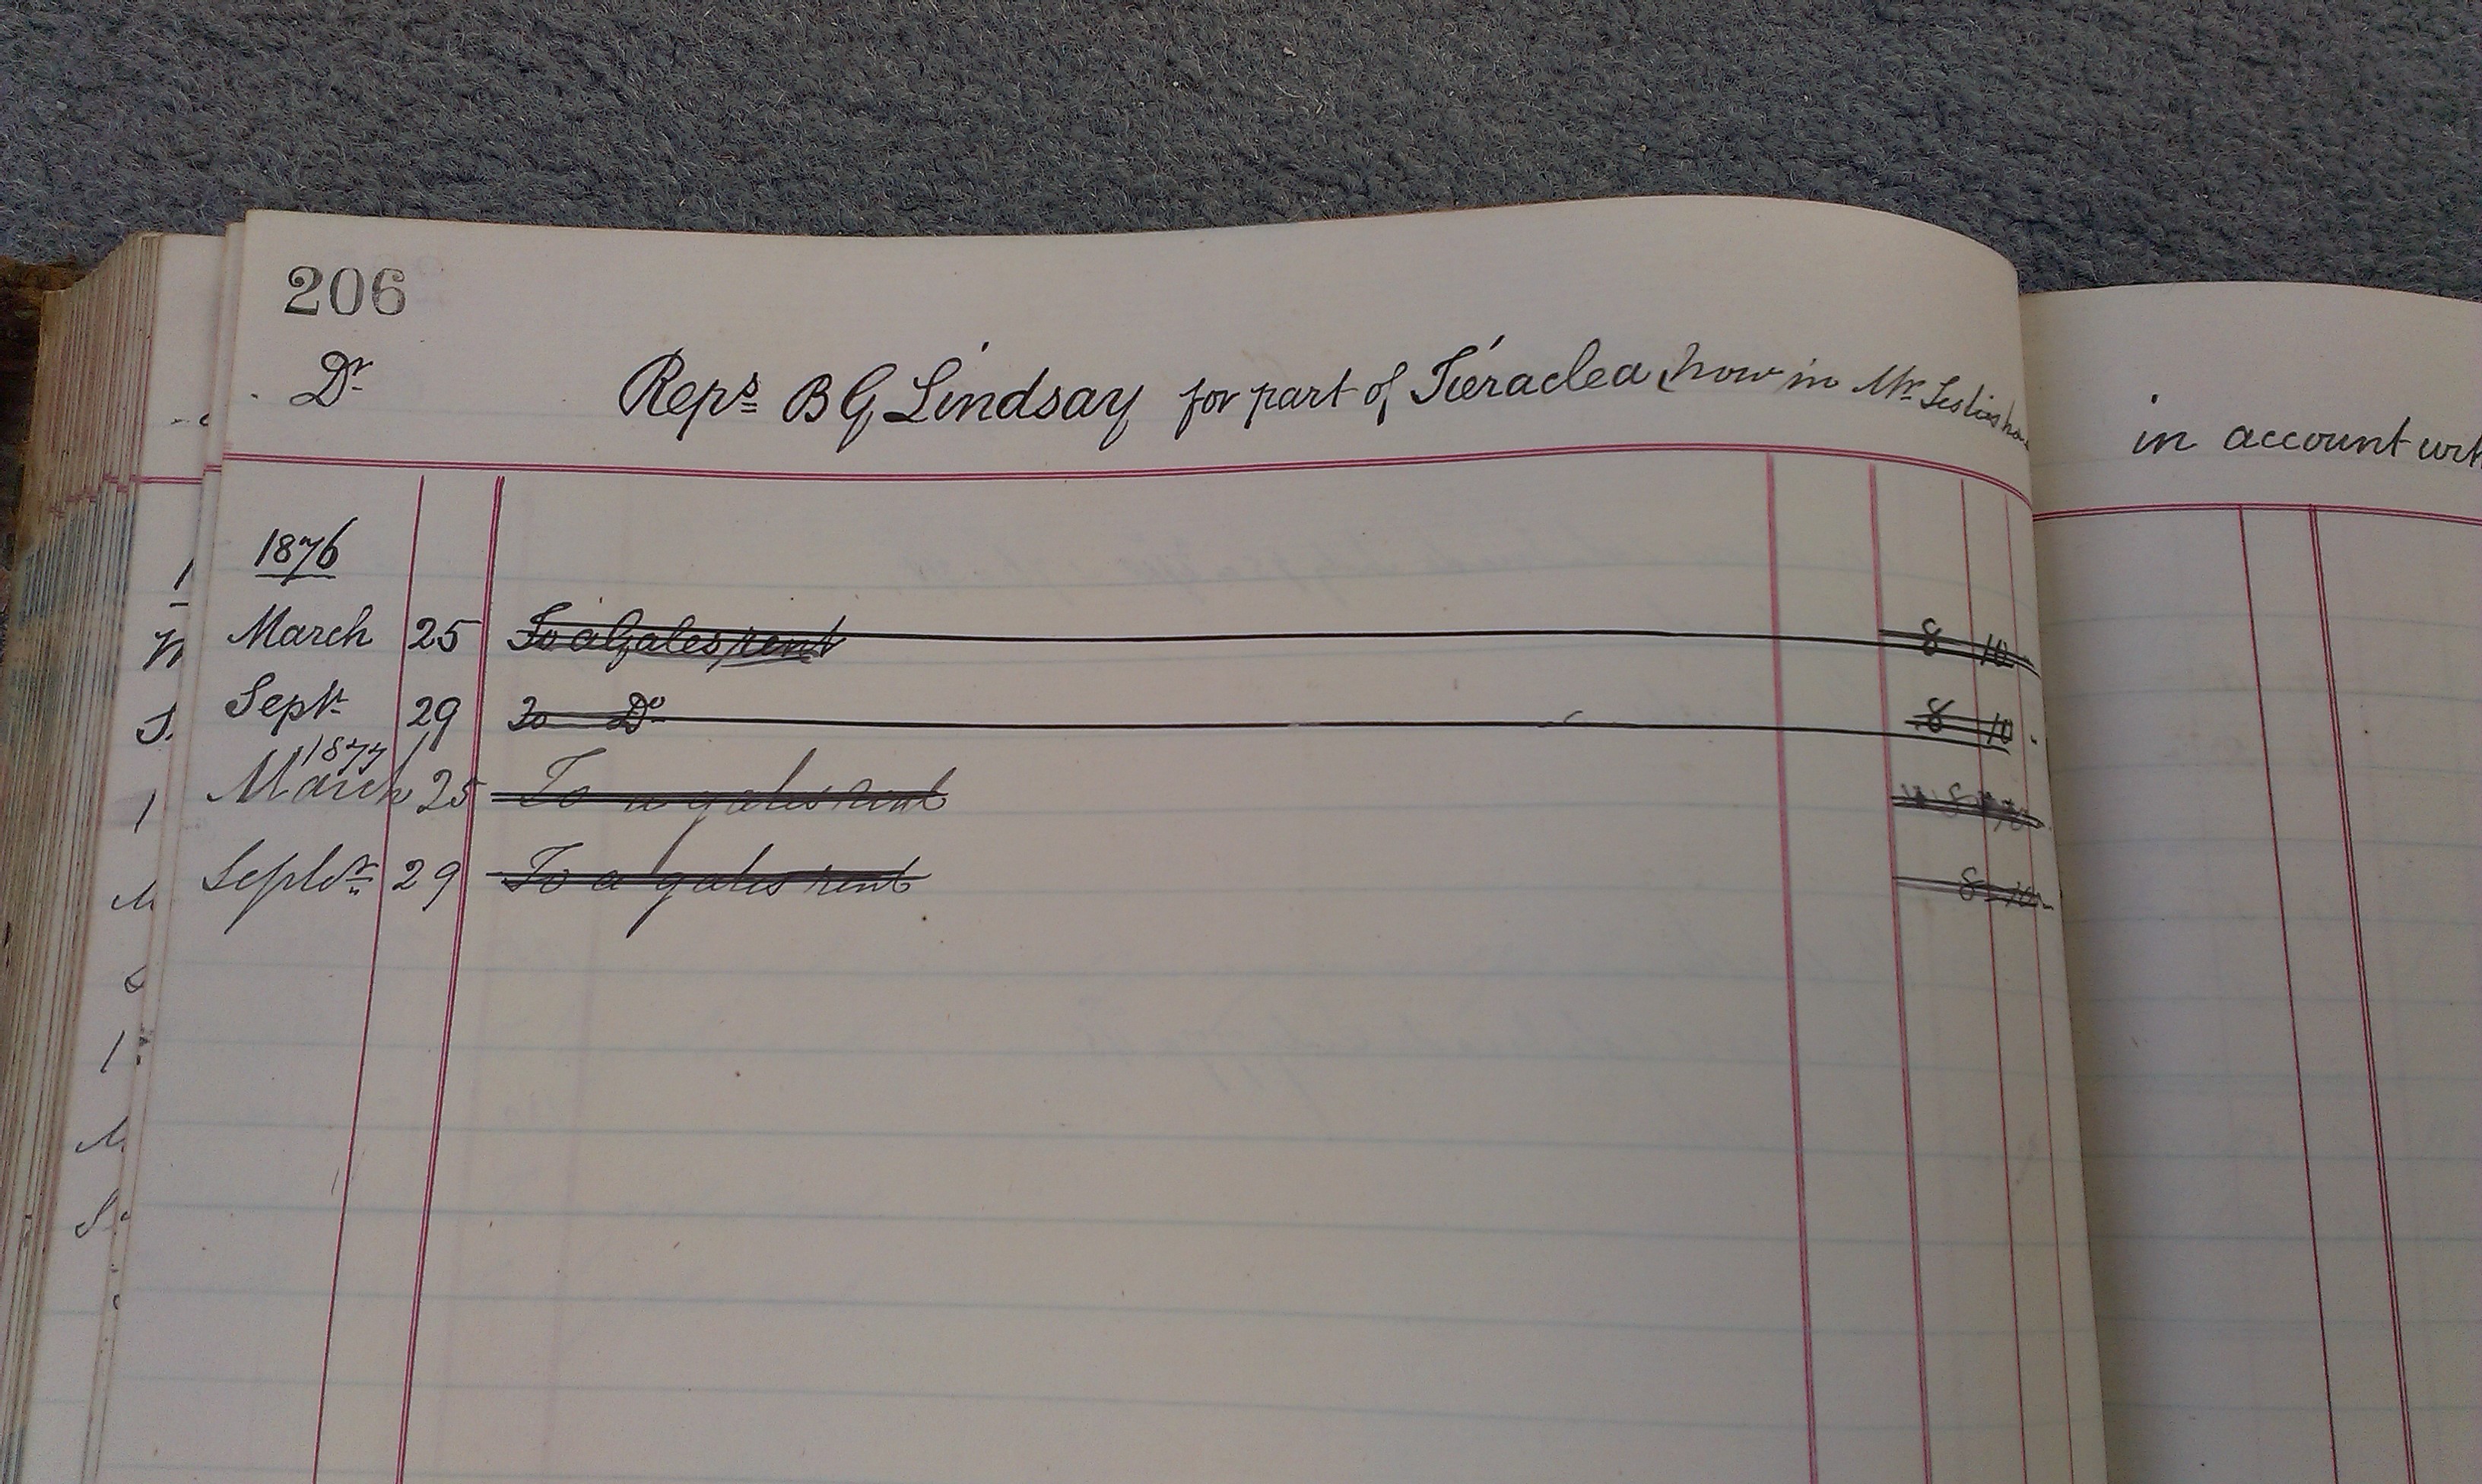 206
Dr Reps B G Lindsay for part of Tieraclea, now in Mr Leslies
in account
1876
March 25 To a Gales rent 8 10
Sept 29 To Do 8 10
1877
March 25 To a gales rent 8 10
Septr 29 To a gales rent 8 10